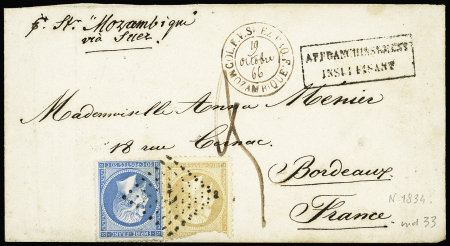 p. Str. "Mozambique"
via Suez
COL. F. V. SUEZ PAQ. FR.
19
Octobre
66
MOZAMBIQUE
AFFRANCHISSEMENT
INSUFFISANT
Mademoiselle Anna Menier
18 rue Cornac
Bordeaux
France
N. 1834
ind 33
EMPIRE FRANC